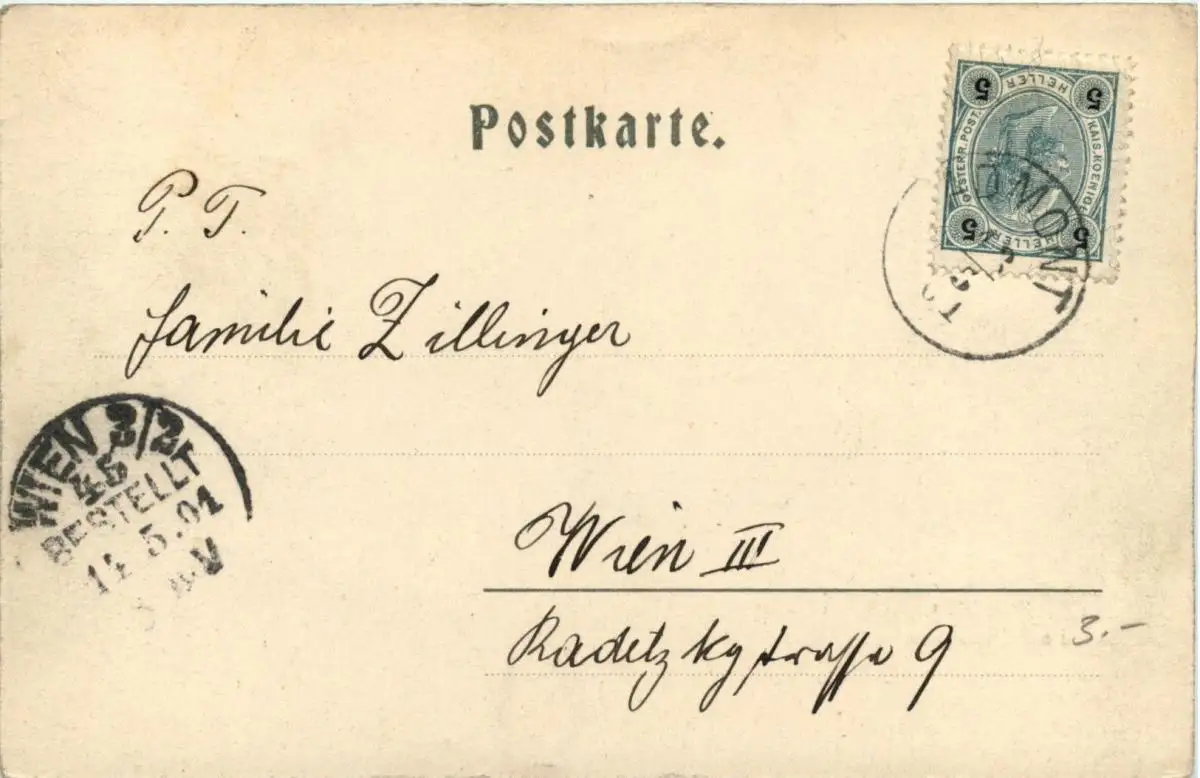 Postkarte.
5 HELLER 5
OESTERR. POST.
KAIS. KOENIGL
5 HELLER 5
DMONT
P. T.
Familie Zillinger
WIEN 3/2
45
BESTELLT
5.01
V
Wien III
Radetzkystrasse 9
3.-